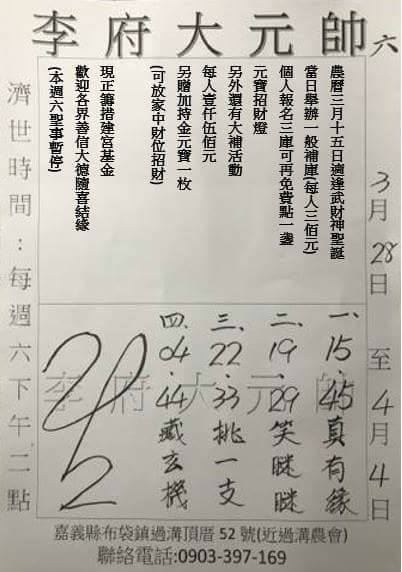 李府大元帥
六
3月28日至4月4日
農曆三月十五日適逢武財神聖誕
當日舉辦一般補庫(每人三佰元)
個人報名三庫可再免費點一盞
元寶招財燈
另外還有大補活動
每人壹仟伍佰元
另贈加持金元寶一枚
(可放家中財位招財)
現正籌措建宮基金
歡迎各界善信大德隨喜結緣
(本週六聖事暫停)
濟世時間:每週六下午二點
李府大元帥
一.15.45真有緣
二.19.29笑瞇瞇
三.22.33挑一支
四.04.44藏玄機
嘉義縣布袋鎮過溝頂厝52號(近過溝農會)
聯絡電話:0903-397-169